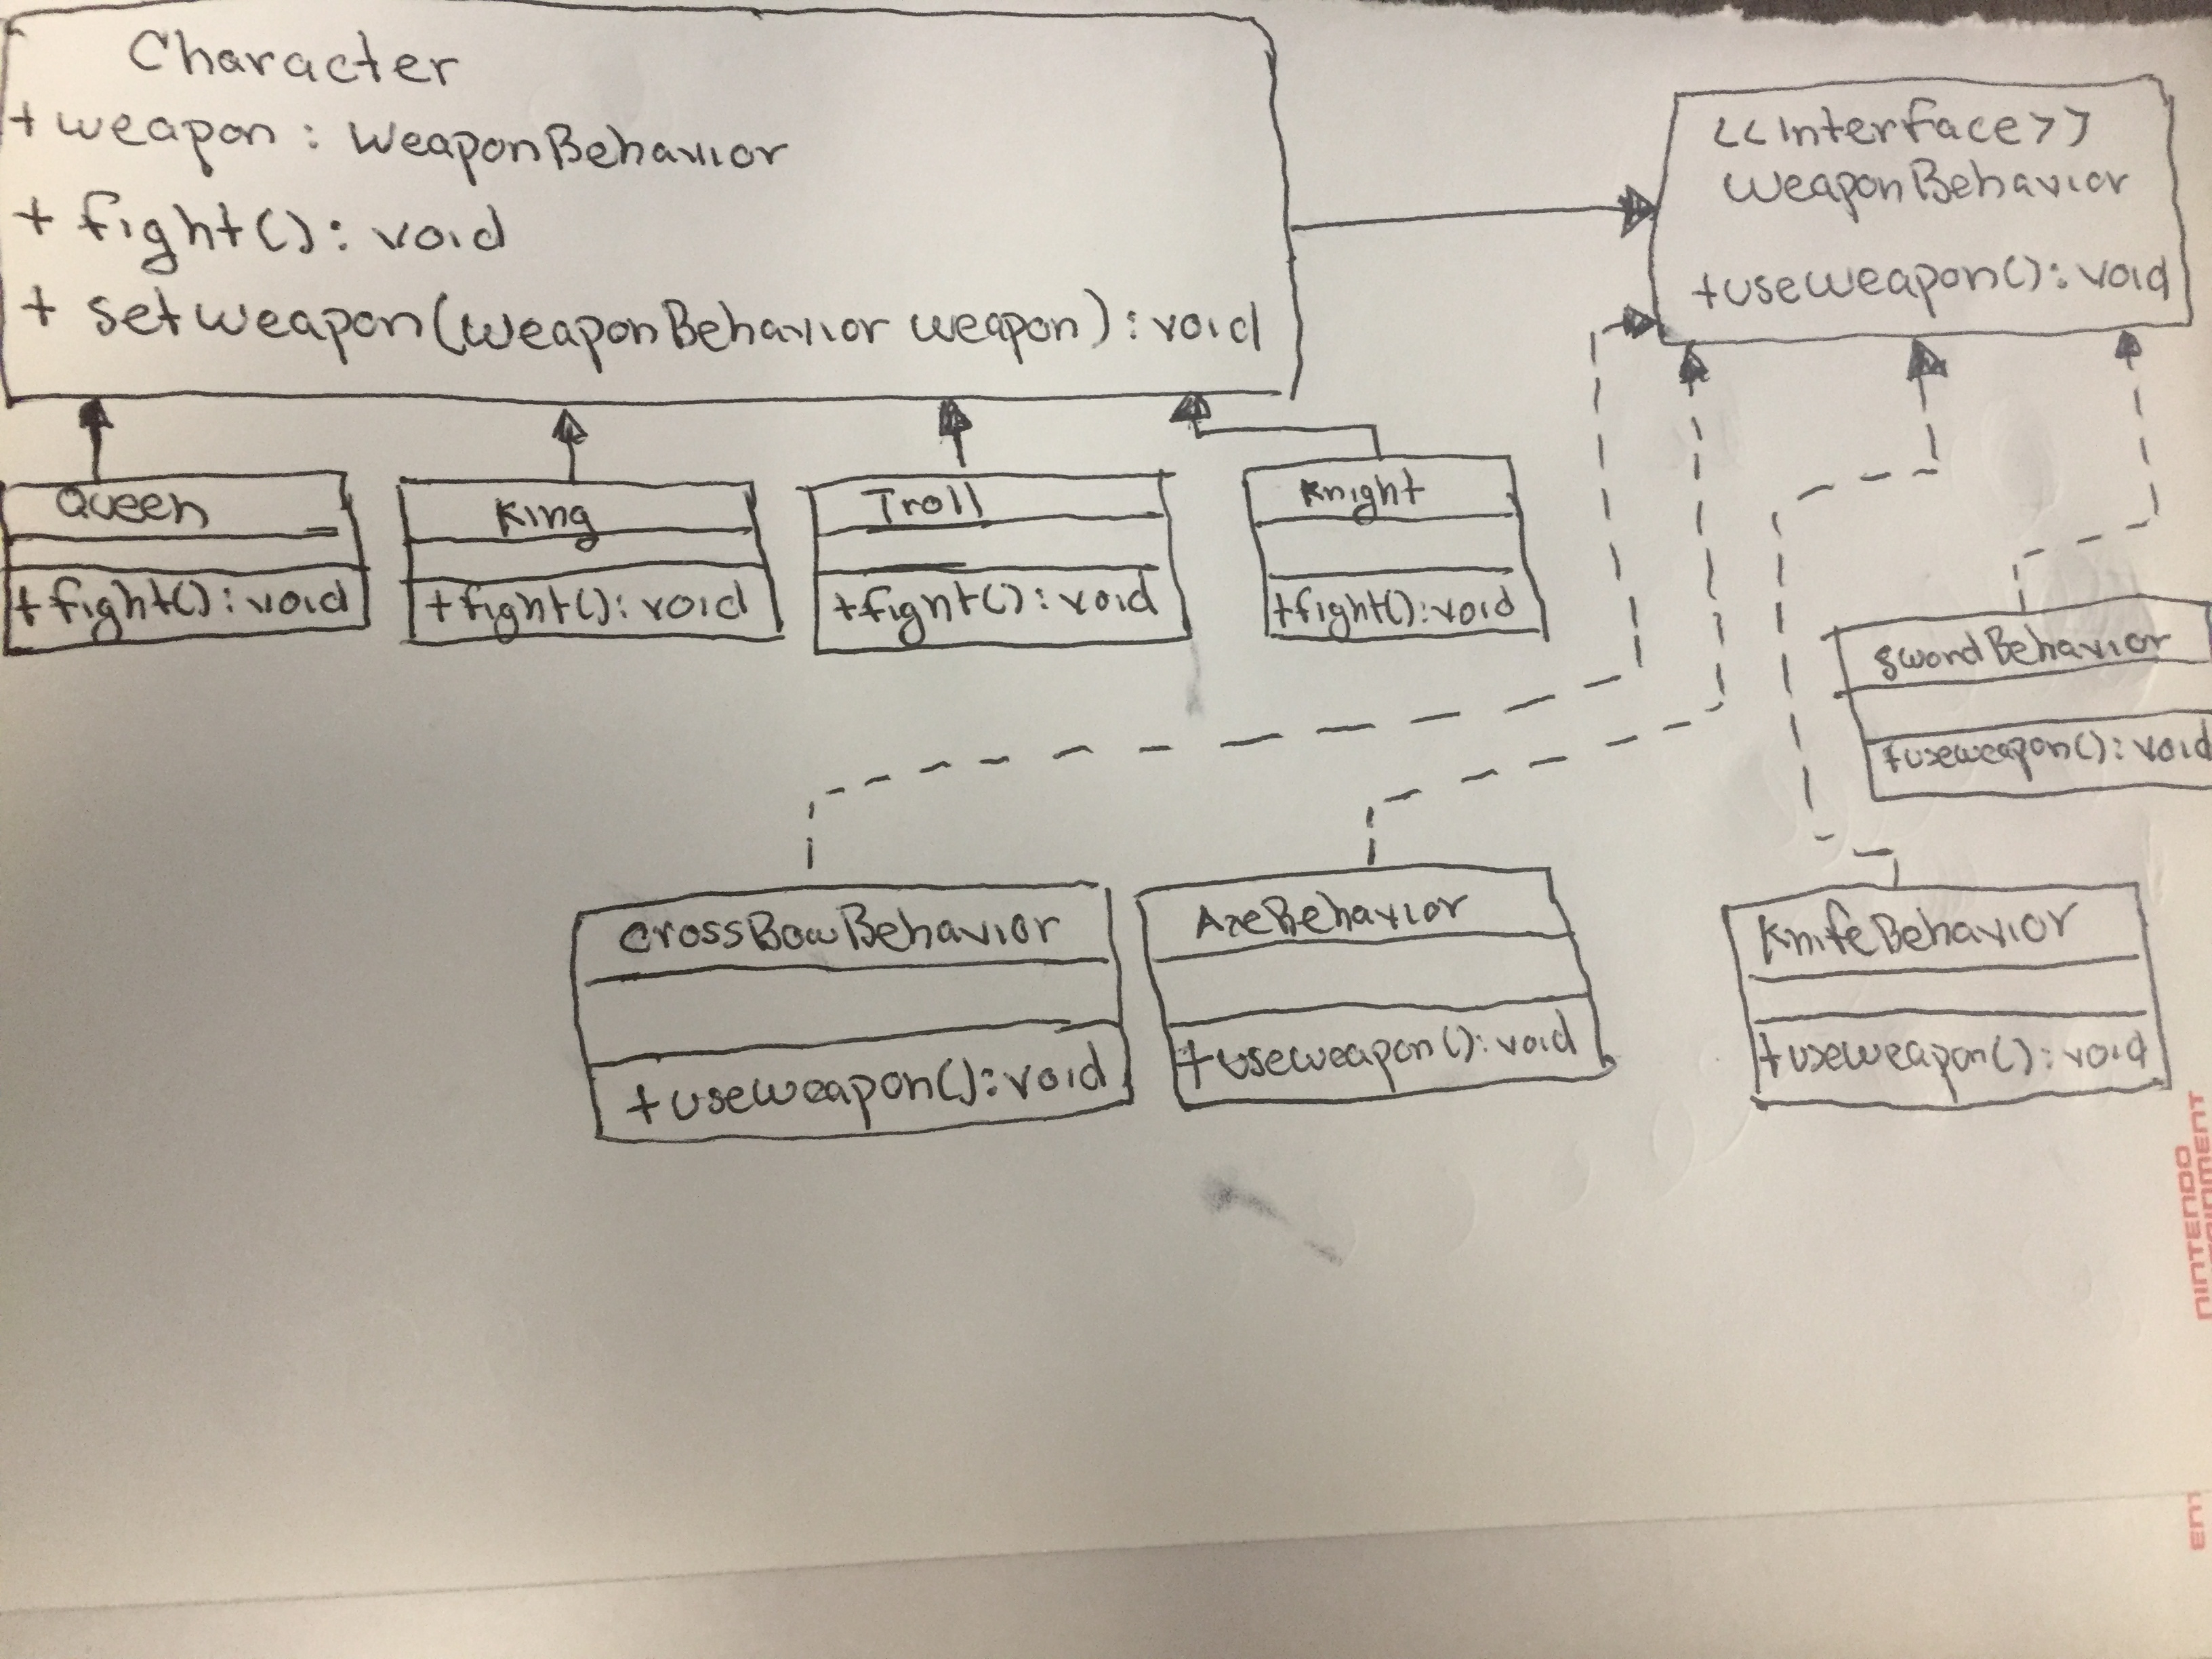 Character
+ weapon : WeaponBehavior
+ fight() : void
+ setweapon(WeaponBehavior weapon) : void
<<Interface>>
WeaponBehavior
+useweapon() : void
Queen
+fight() : void
King
+fight() : void
Troll
+fight() : void
Knight
+fight() : void
SwordBehavior
+useweapon() : void
CrossBowBehavior
+useweapon() : void
AxeBehavior
+useweapon() : void
KnifeBehavior
+useweapon() : void
NINTENDO